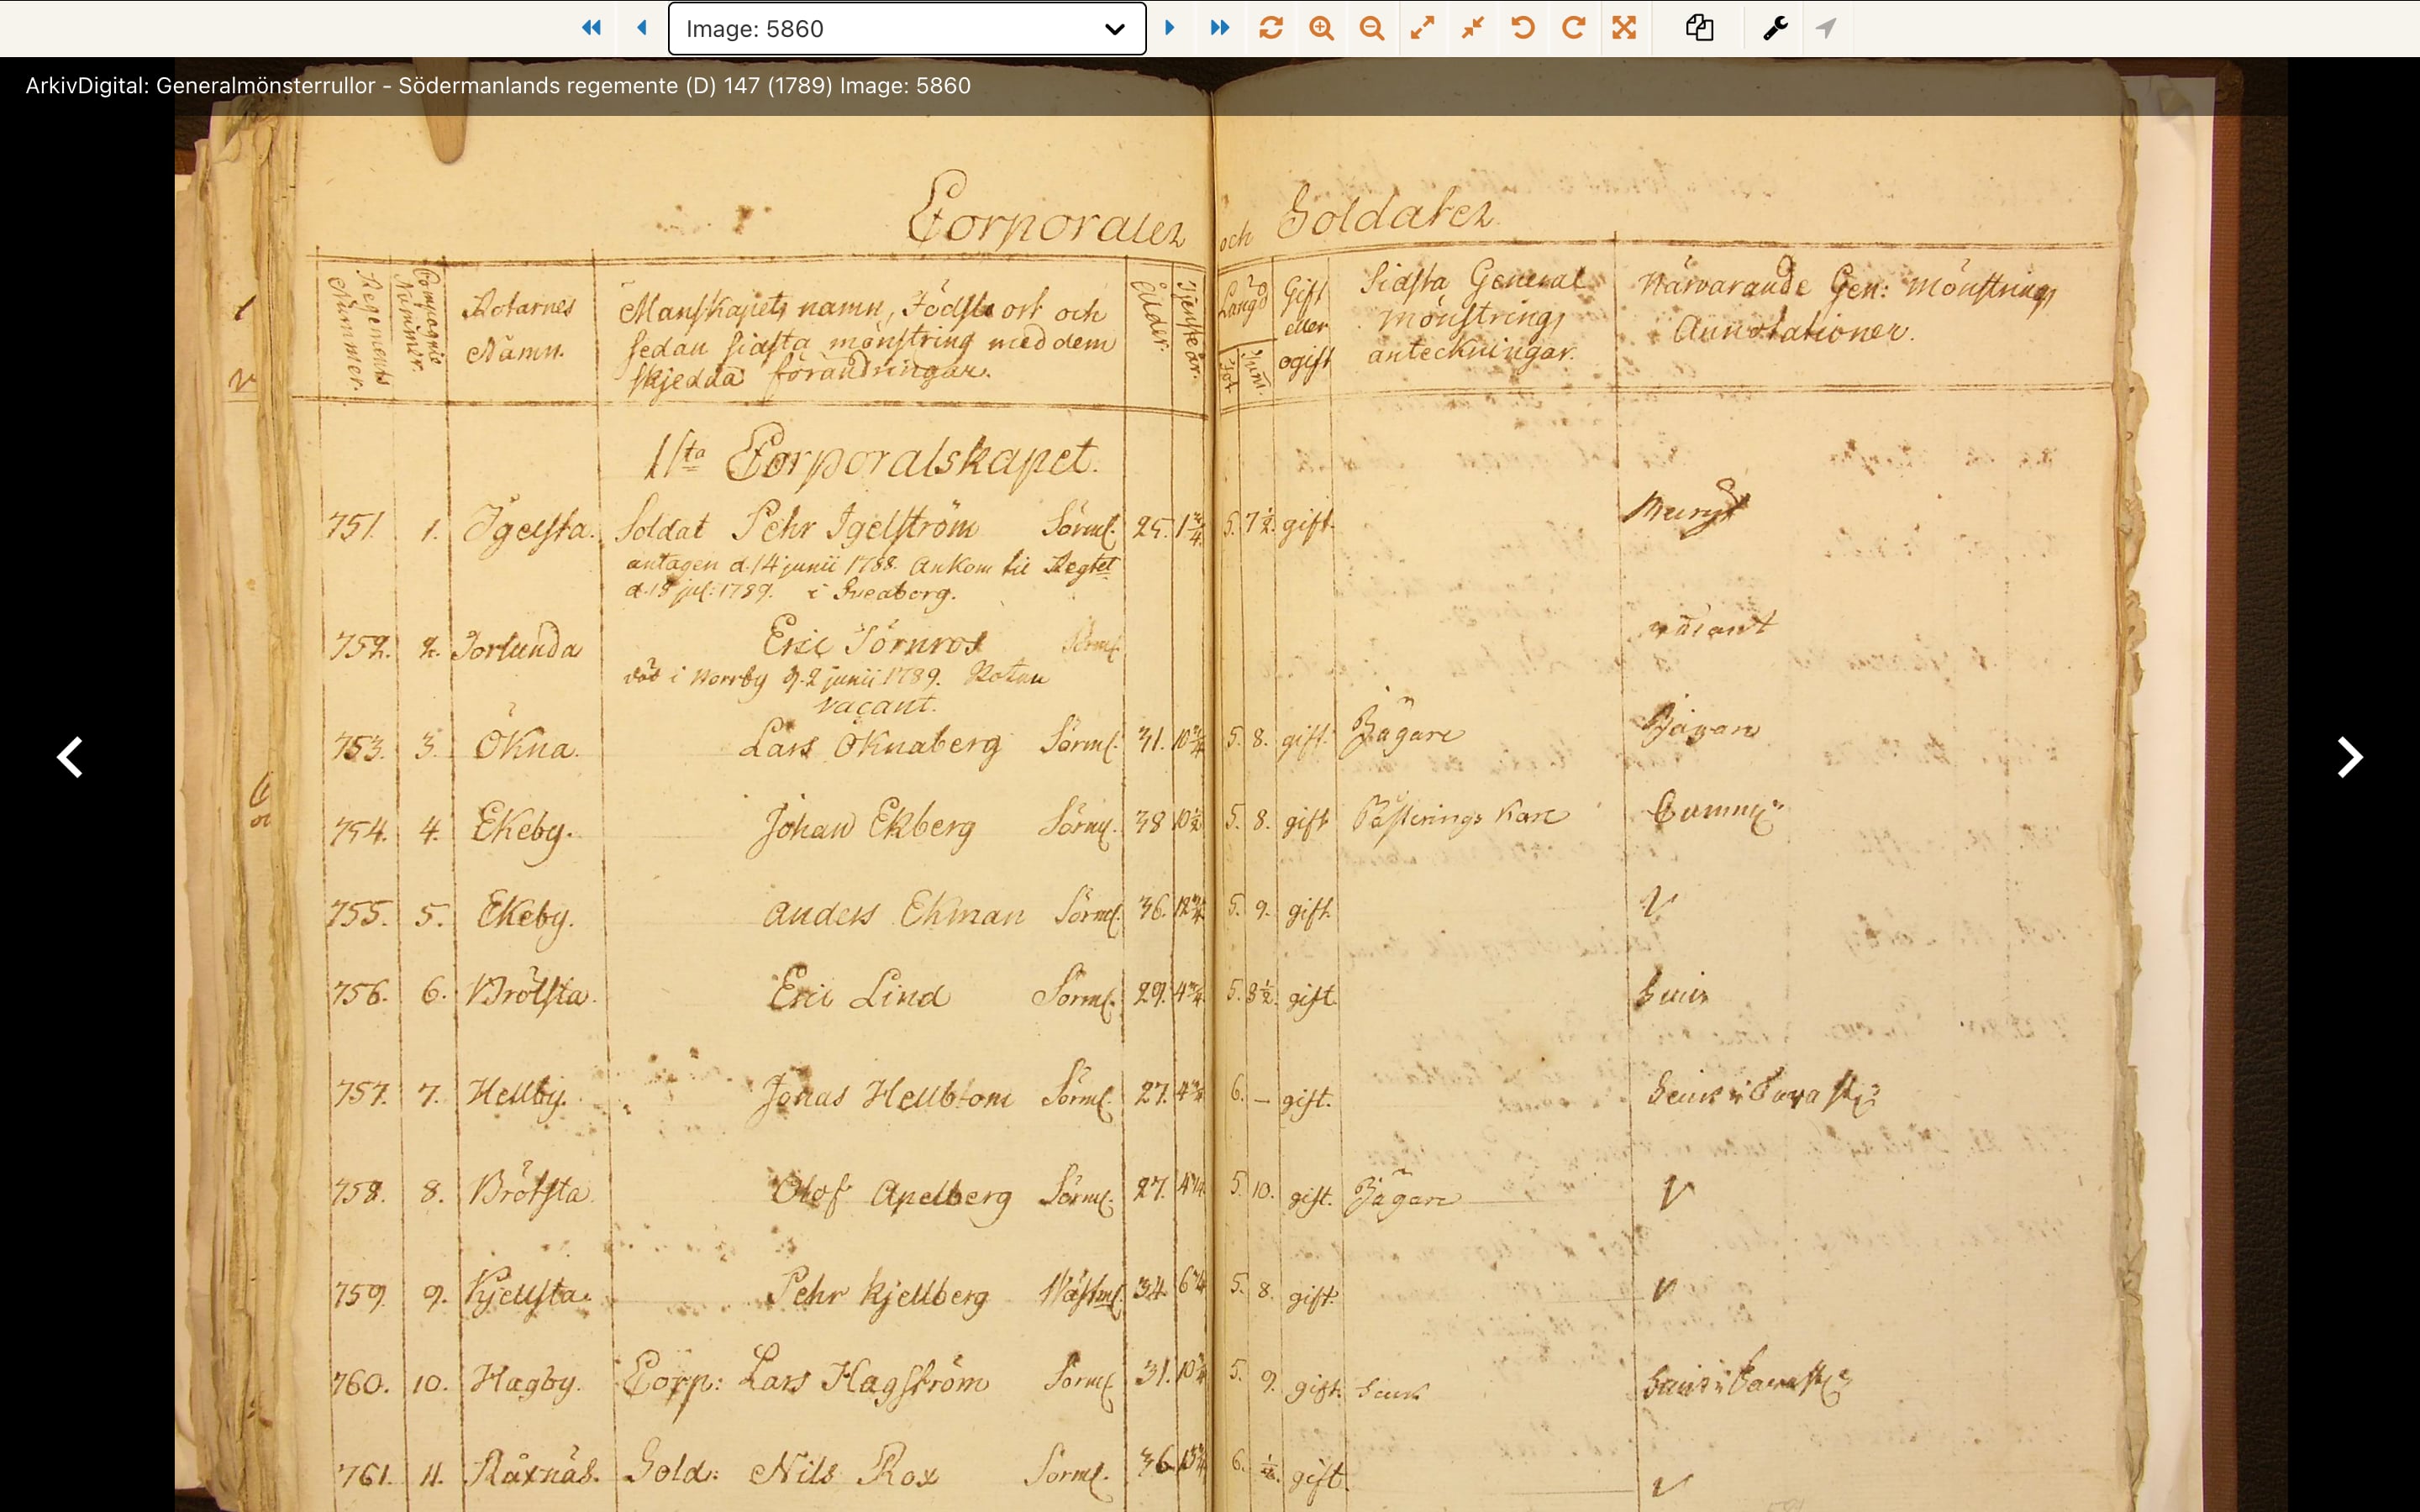 Image: 5860
ArkivDigital: Generalmönsterrullor - Södermanlands regemente (D) 147 (1789) Image: 5860
Corporaler och Soldater
Regements Nummer.
Compagnie Nummer.
Rotarnes Namn.
Manskapets namn, Födslo ort och
sedan sidsta mönstring med dem
skjedda förändringar.
Ålder.
Tjenste år.
Längd
Fot
Tum.
Gift eller ogift
Sidsta General mönstrings anteckningar.
Närvarande Gen: mönstrings Annotationer.
1sta Corporalskapet.
751. 1. Igelsta. Soldat Pehr Igelström Sörml. 25. 1 3/4 5. 7 1/2. gift.
antagen d. 14 junii 1788. Ankom til Regtet
d. 18 jul: 1789. i Sveaborg.
752. 2. Torlunda Eric Törnros Sörml. vacant
död i Norrby d. 2 junii 1789. Rotan
vacant.
753. 3. Ökna. Lars Öknaberg Sörml. 31. 10 3/4 5. 8. gift. Jägare Jägare
754. 4. Ekeby. Johan Ekberg Sörml. 38 10 1/2 5. 8. gift
755. 5. Ekeby. Anders Ekman Sörml. 36. 12 3/4 5. 9. gift. V
756. 6. Brötsta. Eric Lind Sörml. 29. 4 3/4 5. 8 1/2. gift.
757. 7. Hellby. Jonas Hellbom Sörml. 27. 4 3/4 6. — gift.
758. 8. Brötsta. Olof Apelberg Sörml. 27. 5. 10. gift. Jägare V
759. 9. Kjellsta. Pehr Kjellberg Wästml. 34. 5. 8. gift. V
760. 10. Hagby. Corp: Lars Hagström Sörml. 31. 5. 9. gift. Siuk
761. 11. Råxnäs. Sold: Nils Rox Sörml. 36. 6. gift. V